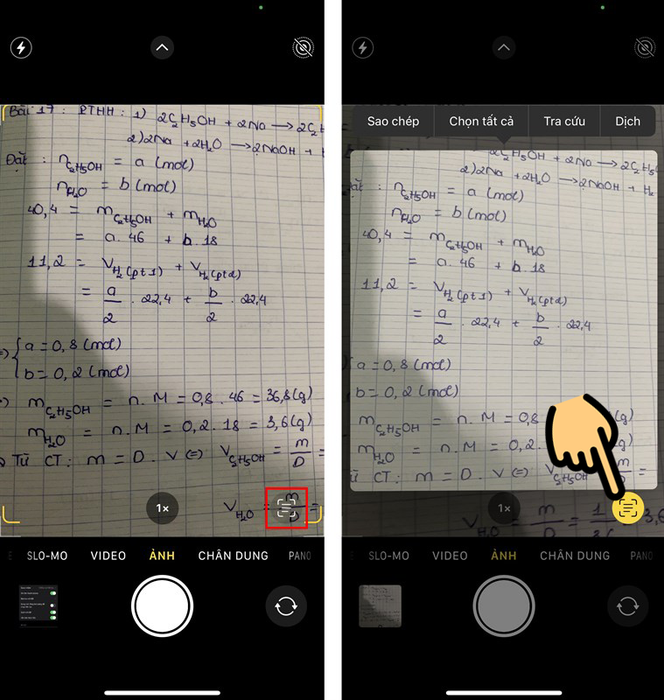 Bài 17: PTHH: 1) 2C₂H₅OH + 2Na → 2C₂H
2) 2Na + 2H₂O → 2NaOH + H
Đặt: n_C₂H₅OH = a (mol)
n_H₂O = b (mol)
40,4 = m_C₂H₅OH + m_H₂O
= a. 46 + b. 18
11,2 = V_H₂(pt1) + V_H₂(pt2)
= a/2 . 22,4 + b/2 . 22,4
a = 0,8 (mol)
b = 0,2 (mol)
m_C₂H₅OH = n. M = 0,8. 46 = 36,8 (g)
m_H₂O = n. M = 0,2. 18 = 3,6 (g)
Từ CT: m = D. V (=) V_C₂H₅OH = m/D =
V_H₂O = m/D =
1×
SLO-MO VIDEO ẢNH CHÂN DUNG PANO
Sao chép Chọn tất cả Tra cứu Dịch
2C₂H₅OH + 2Na → 2C₂H₅
2) 2Na + 2H₂O → 2NaOH + H₂
n_C₂H₅OH = a (mol)
n_H₂O = b (mol)
40,4 = m_C₂H₅OH + m_H₂O
= a. 46 + b. 18
11,2 = V_H₂(pt1) + V_H₂(pt2)
= a/2 . 22,4 + b/2 . 22,4
a = 0,8 (mol)
b = 0,2 (mol)
m_C₂H₅OH = n. M = 0,8 (g)
m_H₂O = n. M = 0,2. (g)
CT: m = D. V (=) V_C₂H₅OH = m/D
V_H₂O = m/D =
1×
SLO-MO VIDEO ẢNH CHÂN DUNG PAN